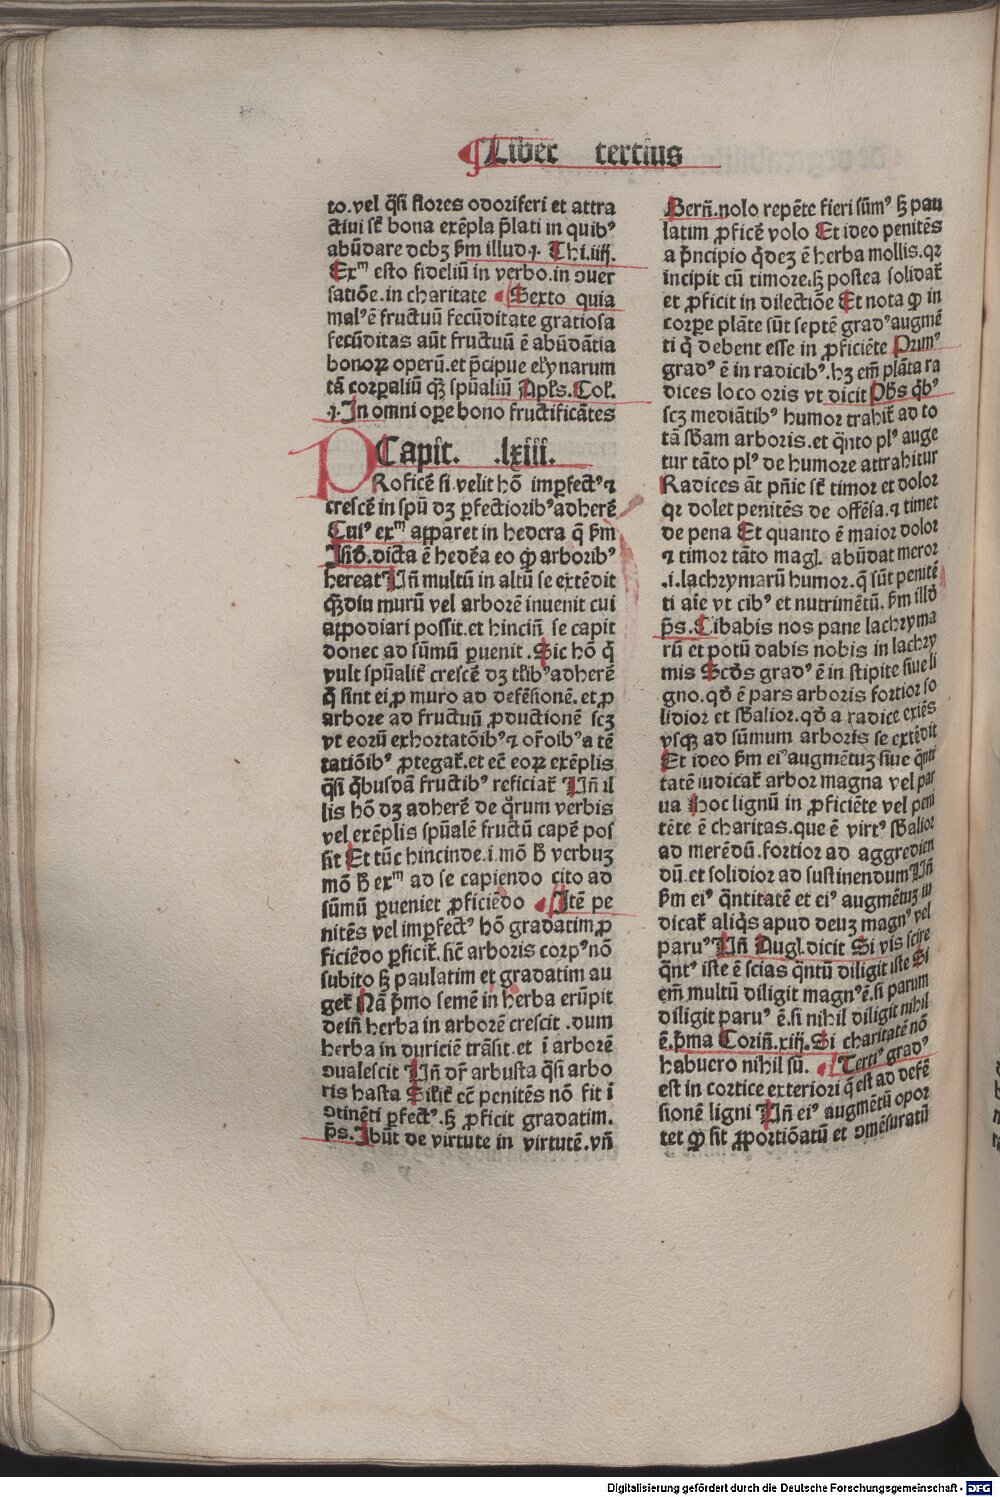 Liber tertius
to.vel q̄si flores odoriferi et attra
ctiui sct̄ bona exēpla p̄lati in quibꝰ
abūdare debꝫ ẜm illud.1. Thi.iiij.
Exᵐ esto fideliū in verbo.in ↄuer
satiōe.in charitate Sexto quia
malꝰ ē fructuū fecūditate gratiosa
fecūditas aūt fructuū ē abūdātia
bonoꝝ operū.et p̄cipue
tā corꝑaliū qꝫ̄ spūaliū Apl̄s.Col̄.
.1.In omni oꝑe bono fructificātes
Capit. .lxiii.
PRoficē si velit hō imꝑfectꝰ ⁊
crescē in spū dꝫ ꝑfectioribꝰ adherē
Cuiꝰ exᵐ apparet in hedera q̄ ẜm
Isid̄.dicta ē hedēa eo ꝙ arboribꝰ
hereat Un̄ multū in altū se extēdit
qꝫ̄diu murū vel arborē inuenit cui
appodiari possit.et hincin̄ se capit
donec ad sūmū ꝑuenit.Sic hō q̄
vult spūalit̄ crescē dꝫ tl̄ibꝰ adherē
q̄ sint ei ꝓ muro ad defēsionē.et ꝓ
arbore ad fructuū ꝓductionē scꝫ
vt eorū exhortatōibꝰ ⁊ or̄oibꝰ a tē
tatiōibꝰ ꝓtegat̄.et ec̄ eoꝝ exēplis
q̄si q̄busdā fructibꝰ reficiat̄ Un̄ il
lis hō dꝫ adherē de q̄rum verbis
vel exēplis spūalē fructū capē pos
sit Et tūc hincinde.i.mō ħ verbuꝫ
mō ħ exᵐ ad se capiendo cito ad
sūmū ꝑueniet ꝓficiēdo Itē pe
nitēs vel imꝑfectꝰ hō gradatim ꝓ
ficiēdo ꝑficit̄.sic̄ arboris corpꝰ nō
subito sꝫ paulatim et gradatim au
get̄ Nā p̄mo semē in herba erūpit
dein̄ herba in arborē crescit.dum
herba in duriciē trāsit.et ī arborē
ↄualescit Un̄ dr̄ arbusta q̄si arbo
ris hasta Sil̄it̄ ec̄ penitēs nō fit ī
ↄtinēti ꝑfectꝰ.sꝫ ꝓficit gradatim.
p̄s.Ibūt de virtute in virtutē.vn̄
Bern̄.nolo repēte fieri sūmꝰ sꝫ pau
latim ꝓficē volo Et ideo penitēs
a p̄ncipio q̄dez ē herba mollis.qꝛ
incipit cū timore.sꝫ postea solidat̄
et ꝓficit in dilectiōe Et nota ꝙ in
corꝑe plāte sūt septē gradꝰ augmē
ti q̄ debent esse in ꝓficiēte Prımꝰ
gradꝰ ē in radicibꝰ.hꝫ em̄ plāta ra
dices loco oris vt dicit Ph̄s q̄bꝰ
scꝫ mediātibꝰ humor trahit̄ ad to
tā sb̄am arboris.et q̄nto plꝰ auge
tur tāto plꝰ de humore attrahitur
Radices āt pn̄ie sūt timor et dolor
qꝛ dolet penitēs de offēsa.⁊ timet
de pena Et quanto ē maior dolor
⁊ timor tāto magꝭ abūdat meror
.i.lachrymarū humor.q̄ sūt penitē
ti aīe vt cibꝰ et nutrimētū.ẜm illd̄
p̄s.Cibabis nos pane lachryma
rū et potū dabis nobis in lachry
mis Scd̄s gradꝰ ē in stipite siue li
gno.qd̄ ē pars arboris fortior so
lidior et sb̄alior.qd̄ a radice exiēs
vsqꝫ ad sūmum arboris se extēdit
Et ideo ẜm eiꝰ augmētuꝫ siue q̄nti
tatē iudicat̄ arbor magna vel par
ua Hoc lignū in ꝓficiēte vel peni
tēte ē charitas.que ē virtꝰ sb̄alior
ad merēdū.fortior ad aggredien
dū.et solidior ad sustinendum Un̄
ẜm eiꝰ q̄ntitatē et eiꝰ augmētuꝫ iu
dicat̄ aliq̄s apud deuꝫ magnꝰ vel
paruꝰ Un̄ Augꝭ.dicit Si vis scire
q̄ntꝰ iste ē scias q̄ntū diligit iste Si
em̄ multū diligit magnꝰ ē.si parum
diligit paruꝰ ē.si nihil diligit nihil
ē.p̄ma Corin̄.xiij.Si charitatē nō
habuero nihil sū. Tertiꝰ gradꝰ
est in cortice exteriori q̄ est ad defē
sionē ligni Un̄ eiꝰ augmētū opor
tet ꝙ sit ꝓportiōatū et ↄmēsuratū
Digitalisierung gefördert durch die Deutsche Forschungsgemeinschaft - DFG